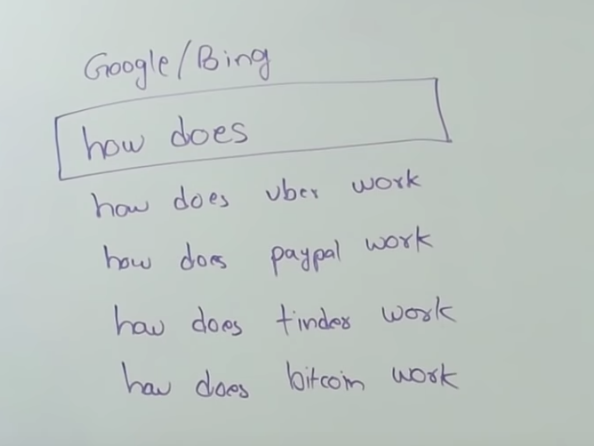 Google/Bing
how does
how does uber work
how does paypal work
how does tinder work
how does bitcoin work